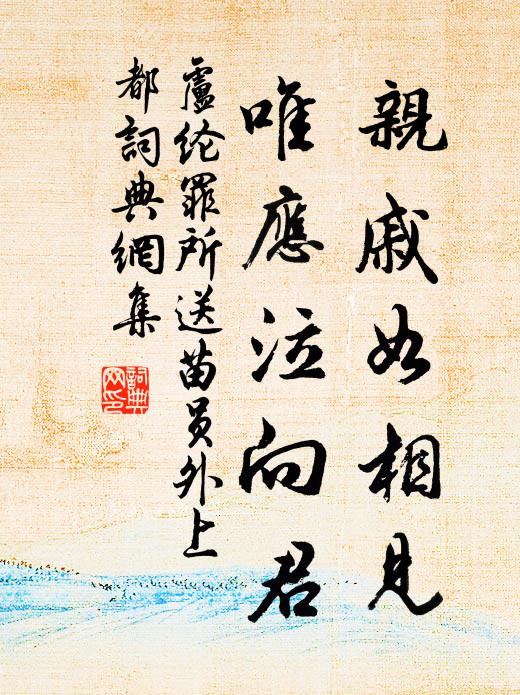 親戚如相見
唯應泣向君
盧纶罪所送苗员外上
都詞典網集
詞典
网印